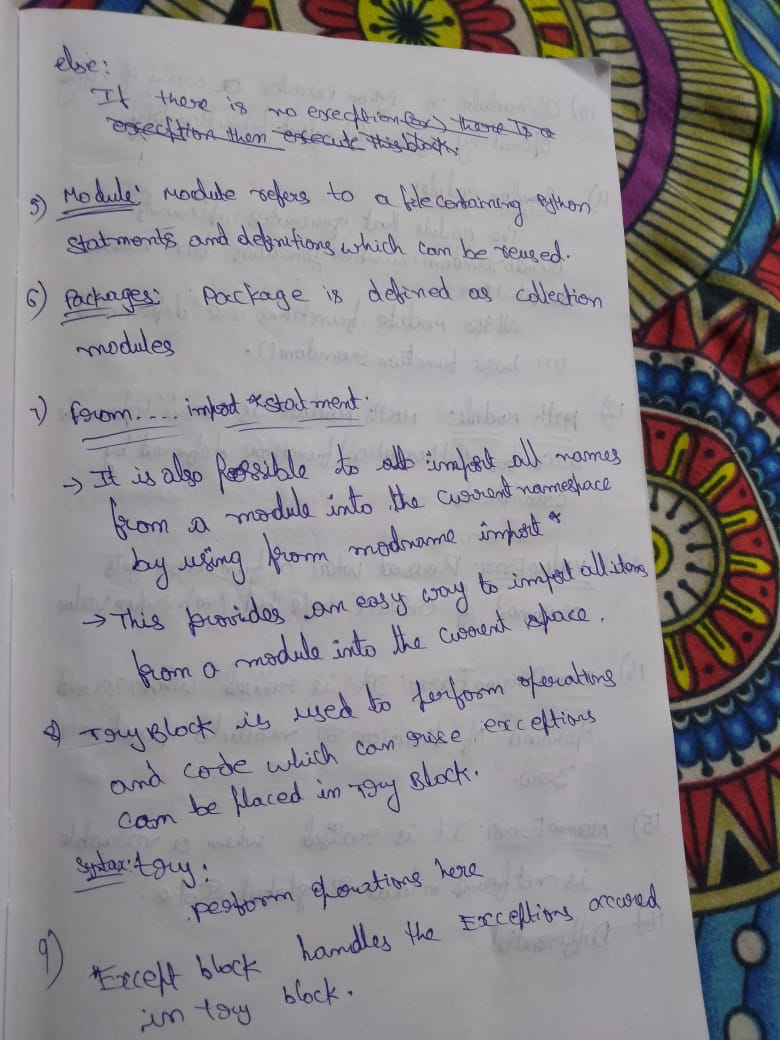 else:
If there is no exeception(or) there is a
exeception then execute this block.
5) Module: Module refers to a file containing Python
Statments and definitions which can be reused.
6) Packages: Package is defined as collection
modules
7) from.... import * statment:
→ It is also possible to all import all names
from a module into the current namespace
by using from modname import *
→ This provides an easy way to import all items
from a module into the current space.
8) Try Block is used to perform operations
and code which can arise exceptions
can be placed in try Block.
Syntax: try:
perform operations here
9) *Except block handles the Exceptions occured
in try block.